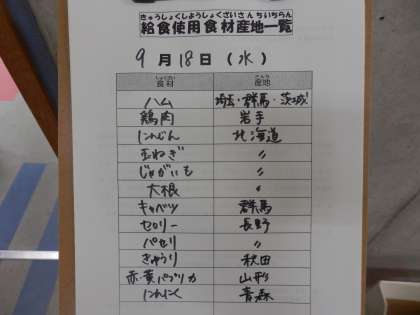 きゅうしょくしようしょくざいさんちいちらん
給食使用食材産地一覧
9月18日(水)
しょくざい さんち
食材 産地
ハム 埼玉・群馬・茨城
鶏肉 岩手
にんじん 北海道
玉ねぎ 〃
じゃがいも 〃
大根 〃
キャベツ 群馬
セロリー 長野
パセリ 〃
きゅうり 秋田
赤・黄パプリカ 山形
にんにく 青森